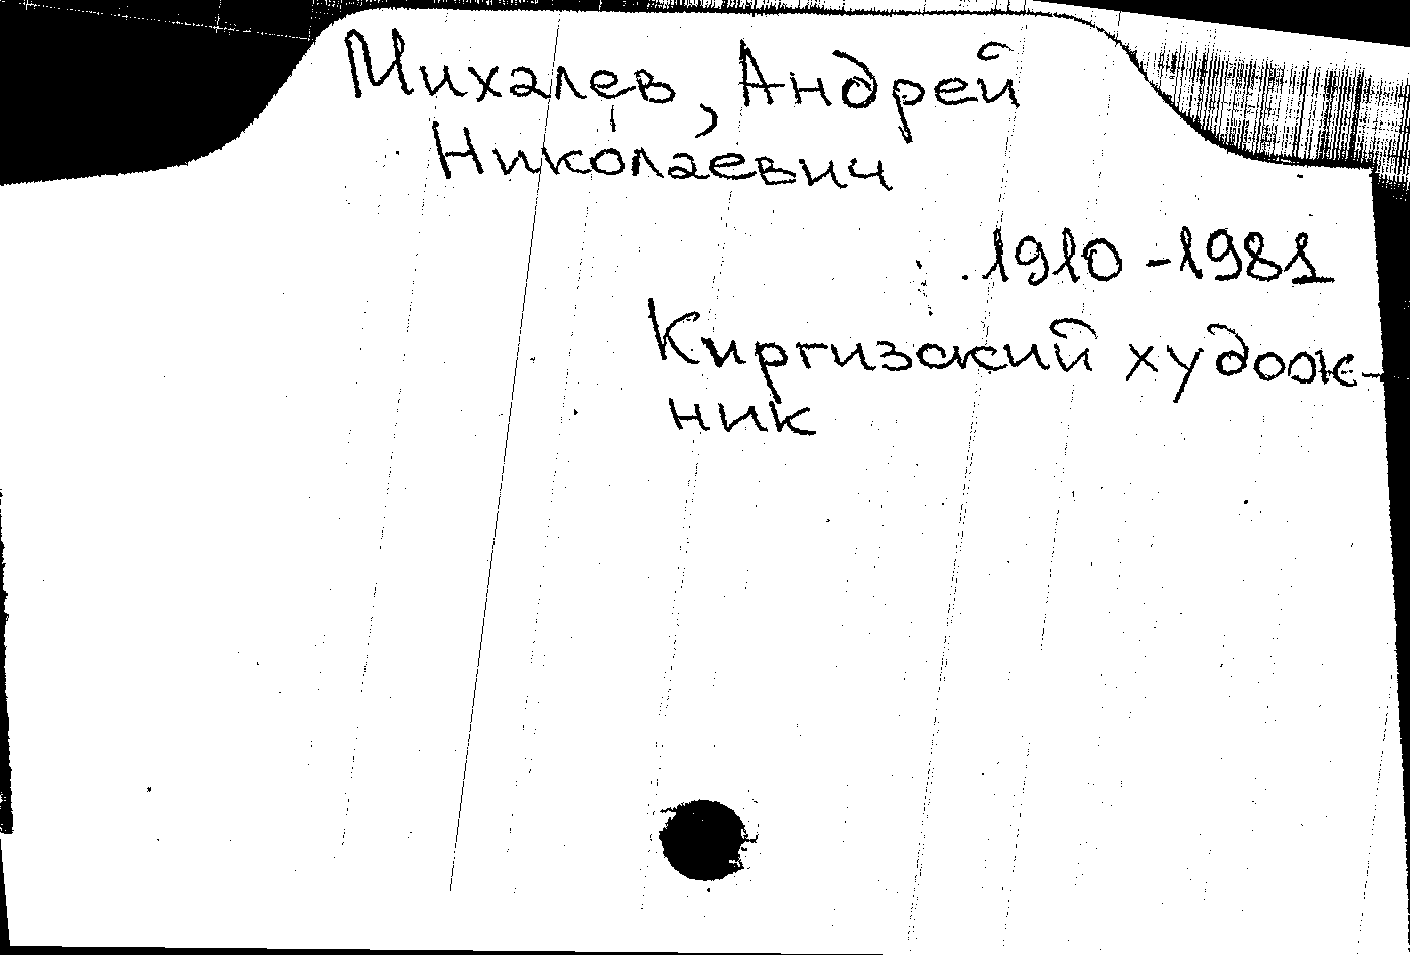 Михалев, Андрей
Николаевич
1910-1981
Киргизский худож-
ник